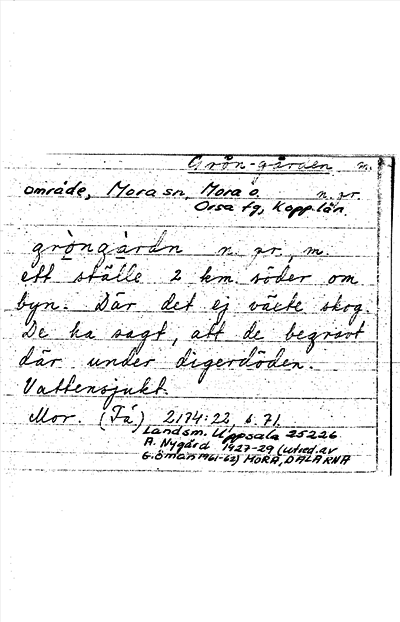 Grön-gården n.
område, Mora sn, Mora o. n. pr.
Orsa tg, Kopp. län.
gröngàrdn n. pr., m.
ett ställe 2 km söder om
byn. Där det ej växte skog.
De ha sagt, att de begravt
där under digerdöden.
Vattensjukt.
Mor. (Få) 2174:22, s. 71.
Landsm. Uppsala 25226
A. Nygård 1927-29 (utred. av
G. Öman 1961-62) MORA, DALARNA